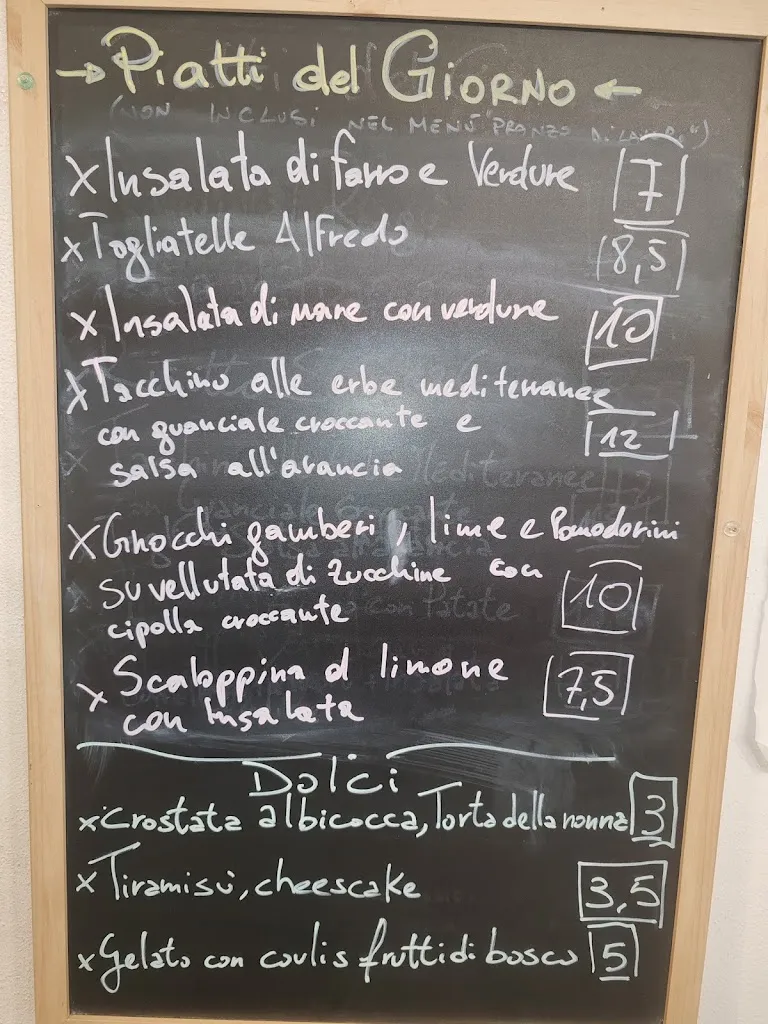 → Piatti del GIORNO ←
(NON INCLUSI NEL MENÙ "PRANZO DI LAVORO")
x Insalata di farro e Verdure 7
x Togliatelle Alfredo 8,5
x Insalata di mare con verdure 10
x Tacchino alle erbe mediterranee
con guanciale croccante e 12
salsa all'arancia
x Gnocchi gamberi, lime e Pomodorini
su vellutata di zucchine con 10
cipolla croccante
x Scaloppina al limone 7,5
con Insalata
Dolci
x Crostata albicocca, Torta della nonna 3
x Tiramisù, cheescake 3,5
x Gelato con coulis frutti di bosco 5